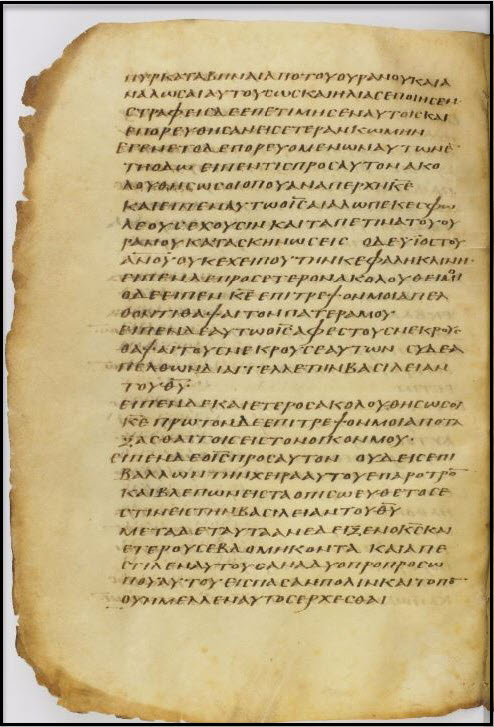 ΠΥΡΚΑΤΑΒΗΝΑΙΑΠΟΤΟΥΟΥΡΑΝΟΥΚΑΙΑ
ΝΑΛΩϹΑΙΑΥΤΟΥϹΩϹΚΑΙΗΛΙΑϹΕΠΟΙΗϹΕΝ·
ϹΤΡΑΦΕΙϹΔΕΕΠΕΤΙΜΗϹΕΝΑΥΤΟΙϹΚΑΙ
ΕΠΟΡΕΥΘΗϹΑΝΕΙϹΕΤΕΡΑΝΚΩΜΗΝ
ΕΓΕΝΕΤΟΔΕΠΟΡΕΥΟΜΕΝΩΝΑΥΤΩΝΕ̅
ΤΗΟΔΩ ΕΙΠΕΝΤΙϹΠΡΟϹΑΥΤΟΝΑΚΟ
ΛΟΥΘΗϹΩϹΟΙΟΠΟΥΑΝΑΠΕΡΧΗΚ̅Ε̅
ΚΑΙΕΙΠΕΝΑΥΤΩΟΙ̅Ϲ̅ΑΙΑΛΩΠΕΚΕϹΦΩ
ΛΕΟΥϹΕΧΟΥϹΙΝΚΑΙΤΑΠΕΤΙΝΑΤΟΥΟΥ
ΡΑΝΟΥΚΑΤΑϹΚΗΝΩϹΕΙϹ ΟΔΕΥΙΟϹΤΟΥ
Α̅Ν̅Ο̅Υ̅ΟΥΚΕΧΕΙΠΟΥΤΗΝΚΕΦΑΛΗΚΛΙΝΗ·
ΕΙΠΕΝΔΕΠΡΟϹΕΤΕΡΟΝΑΚΟΛΟΥΘΕΙΜΟΙ
ΟΔΕΕΙΠΕΝΚ̅Ε̅ΕΠΙΤΡΕΨΟΝΜΟΙΑΠΕΛ
ΘΟΝΤΙΘΑΨΑΙΤΟΝΠΑΤΕΡΑΜΟΥ
ΕΙΠΕΝΔΕΑΥΤΩΟΙ̅Ϲ̅ΑΦΕϹΤΟΥϹΝΕΚΡΟΥϹ
ΘΑΨΑΙΤΟΥϹΝΕΚΡΟΥϹΕΑΥΤΩΝ ϹΥΔΕΑ
ΠΕΛΘΩΝΔΙΑΓΓΕΛΛΕΤΗΝΒΑϹΙΛΕΙΑΝ
ΤΟΥΘ̅Υ̅
ΕΙΠΕΝΔΕΚΑΙΕΤΕΡΟϹΑΚΟΛΟΥΘΗϹΩϹΟΙ
Κ̅Ε̅ΠΡΩΤΟΝΔΕΕΠΙΤΡΕΨΟΝΜΟΙΑΠΟΤΑ
ΞΑϹΘΑΙΤΟΙϹΕΙϹΤΟΝΟΙΚΟΝΜΟΥ·
ΕΙΠΕΝΔΕΟΙ̅Ϲ̅ΠΡΟϹΑΥΤΟΝ ΟΥΔΕΙϹΕΠΙ
ΒΑΛΛΩΝΤΗΝΧΕΙΡΑΑΥΤΟΥΕΠΑΡΟΤΡΟ̅
ΚΑΙΒΛΕΠΩΝΕΙϹΤΑΟΠΙϹΩΕΥΘΕΤΟϹΕ
ϹΤΙΝΕΙϹΤΗΝΒΑϹΙΛΕΙΑΝΤΟΥΘ̅Υ̅
ΜΕΤΑΔΕΤΑΥΤΑΑΝΕΔΕΙΞΕΝΟΚ̅Ϲ̅ΚΑΙ
ΕΤΕΡΟΥϹΕΒΔΟΜΗΚΟΝΤΑ ΚΑΙΑΠΕ
ϹΤΙΛΕΝΑΥΤΟΥϹΑΝΑΔΥΟΠΡΟΠΡΟϹΩ
ΠΟΥΑΥΤΟΥΕΙϹΠΑϹΑΝΠΟΛΙΝΚΑΙΤΟΠΟ̅
ΟΥΗΜΕΛΛΕΝΑΥΤΟϹΕΡΧΕϹΘΑΙ